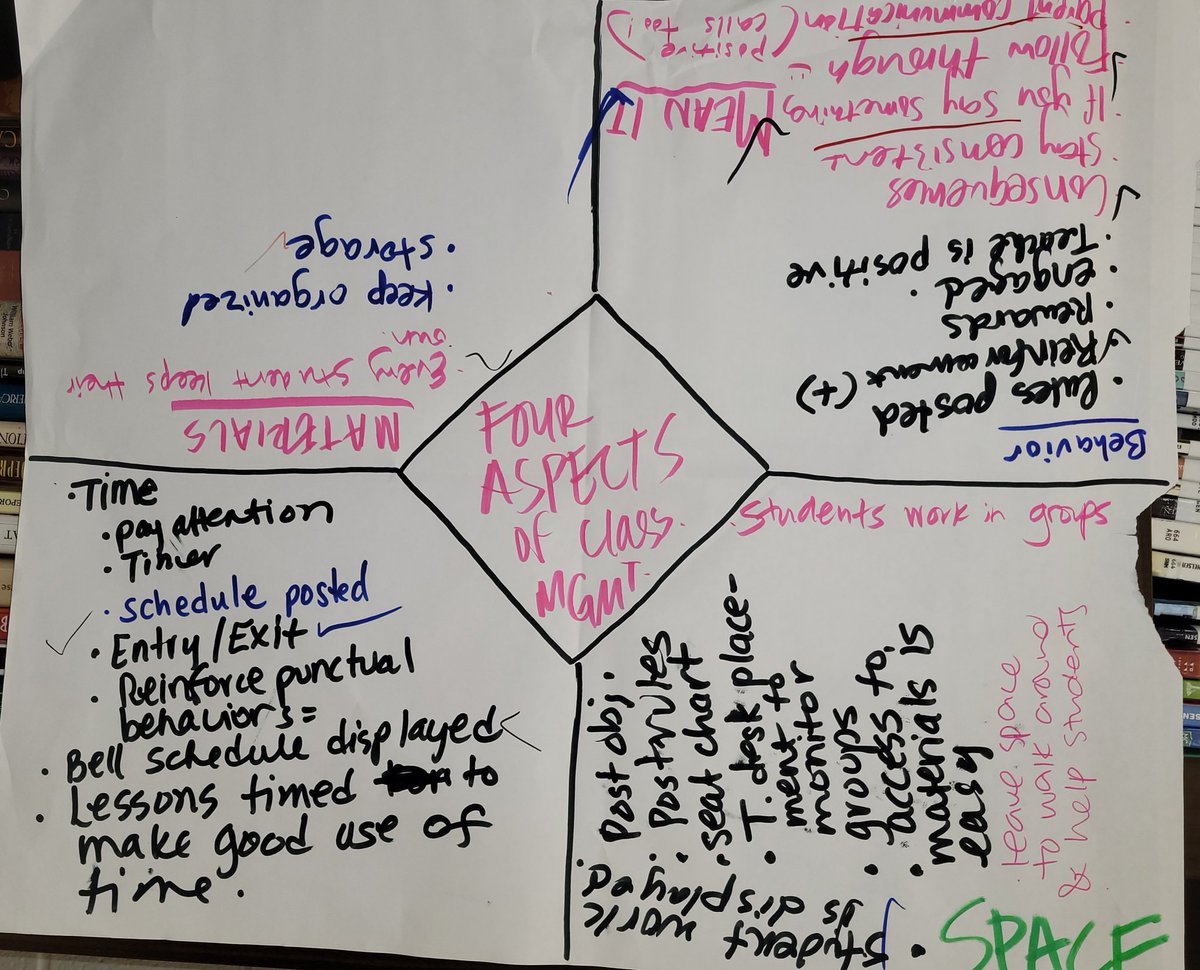 FOUR
ASPECTS
of Class.
MGMT.
MATERIALS
· Every student keeps their
own.
· Keep organized
· storage
Behavior
· Rules posted
✓ Reinforcement (+)
· Rewards
· engaged
· is positive
✓ Consequences
· stay consistent
· If you say something,
MEAN IT
✓ Follow through
· parent communication (positive
calls too!)
· Time
· pay attention
· Timer
· schedule posted
· Entry/Exit
· Reinforce punctual
behaviors=
· Bell schedule displayed
· Lessons timed to
make good use of
time.
SPACE
· Students work in groups
· Post obj.
· Post rules
· seat chart
· T. desk place-
ment to
monitor
groups
· access to
materials is
easy
leave space
to walk around
& help students
· student work
is displayed